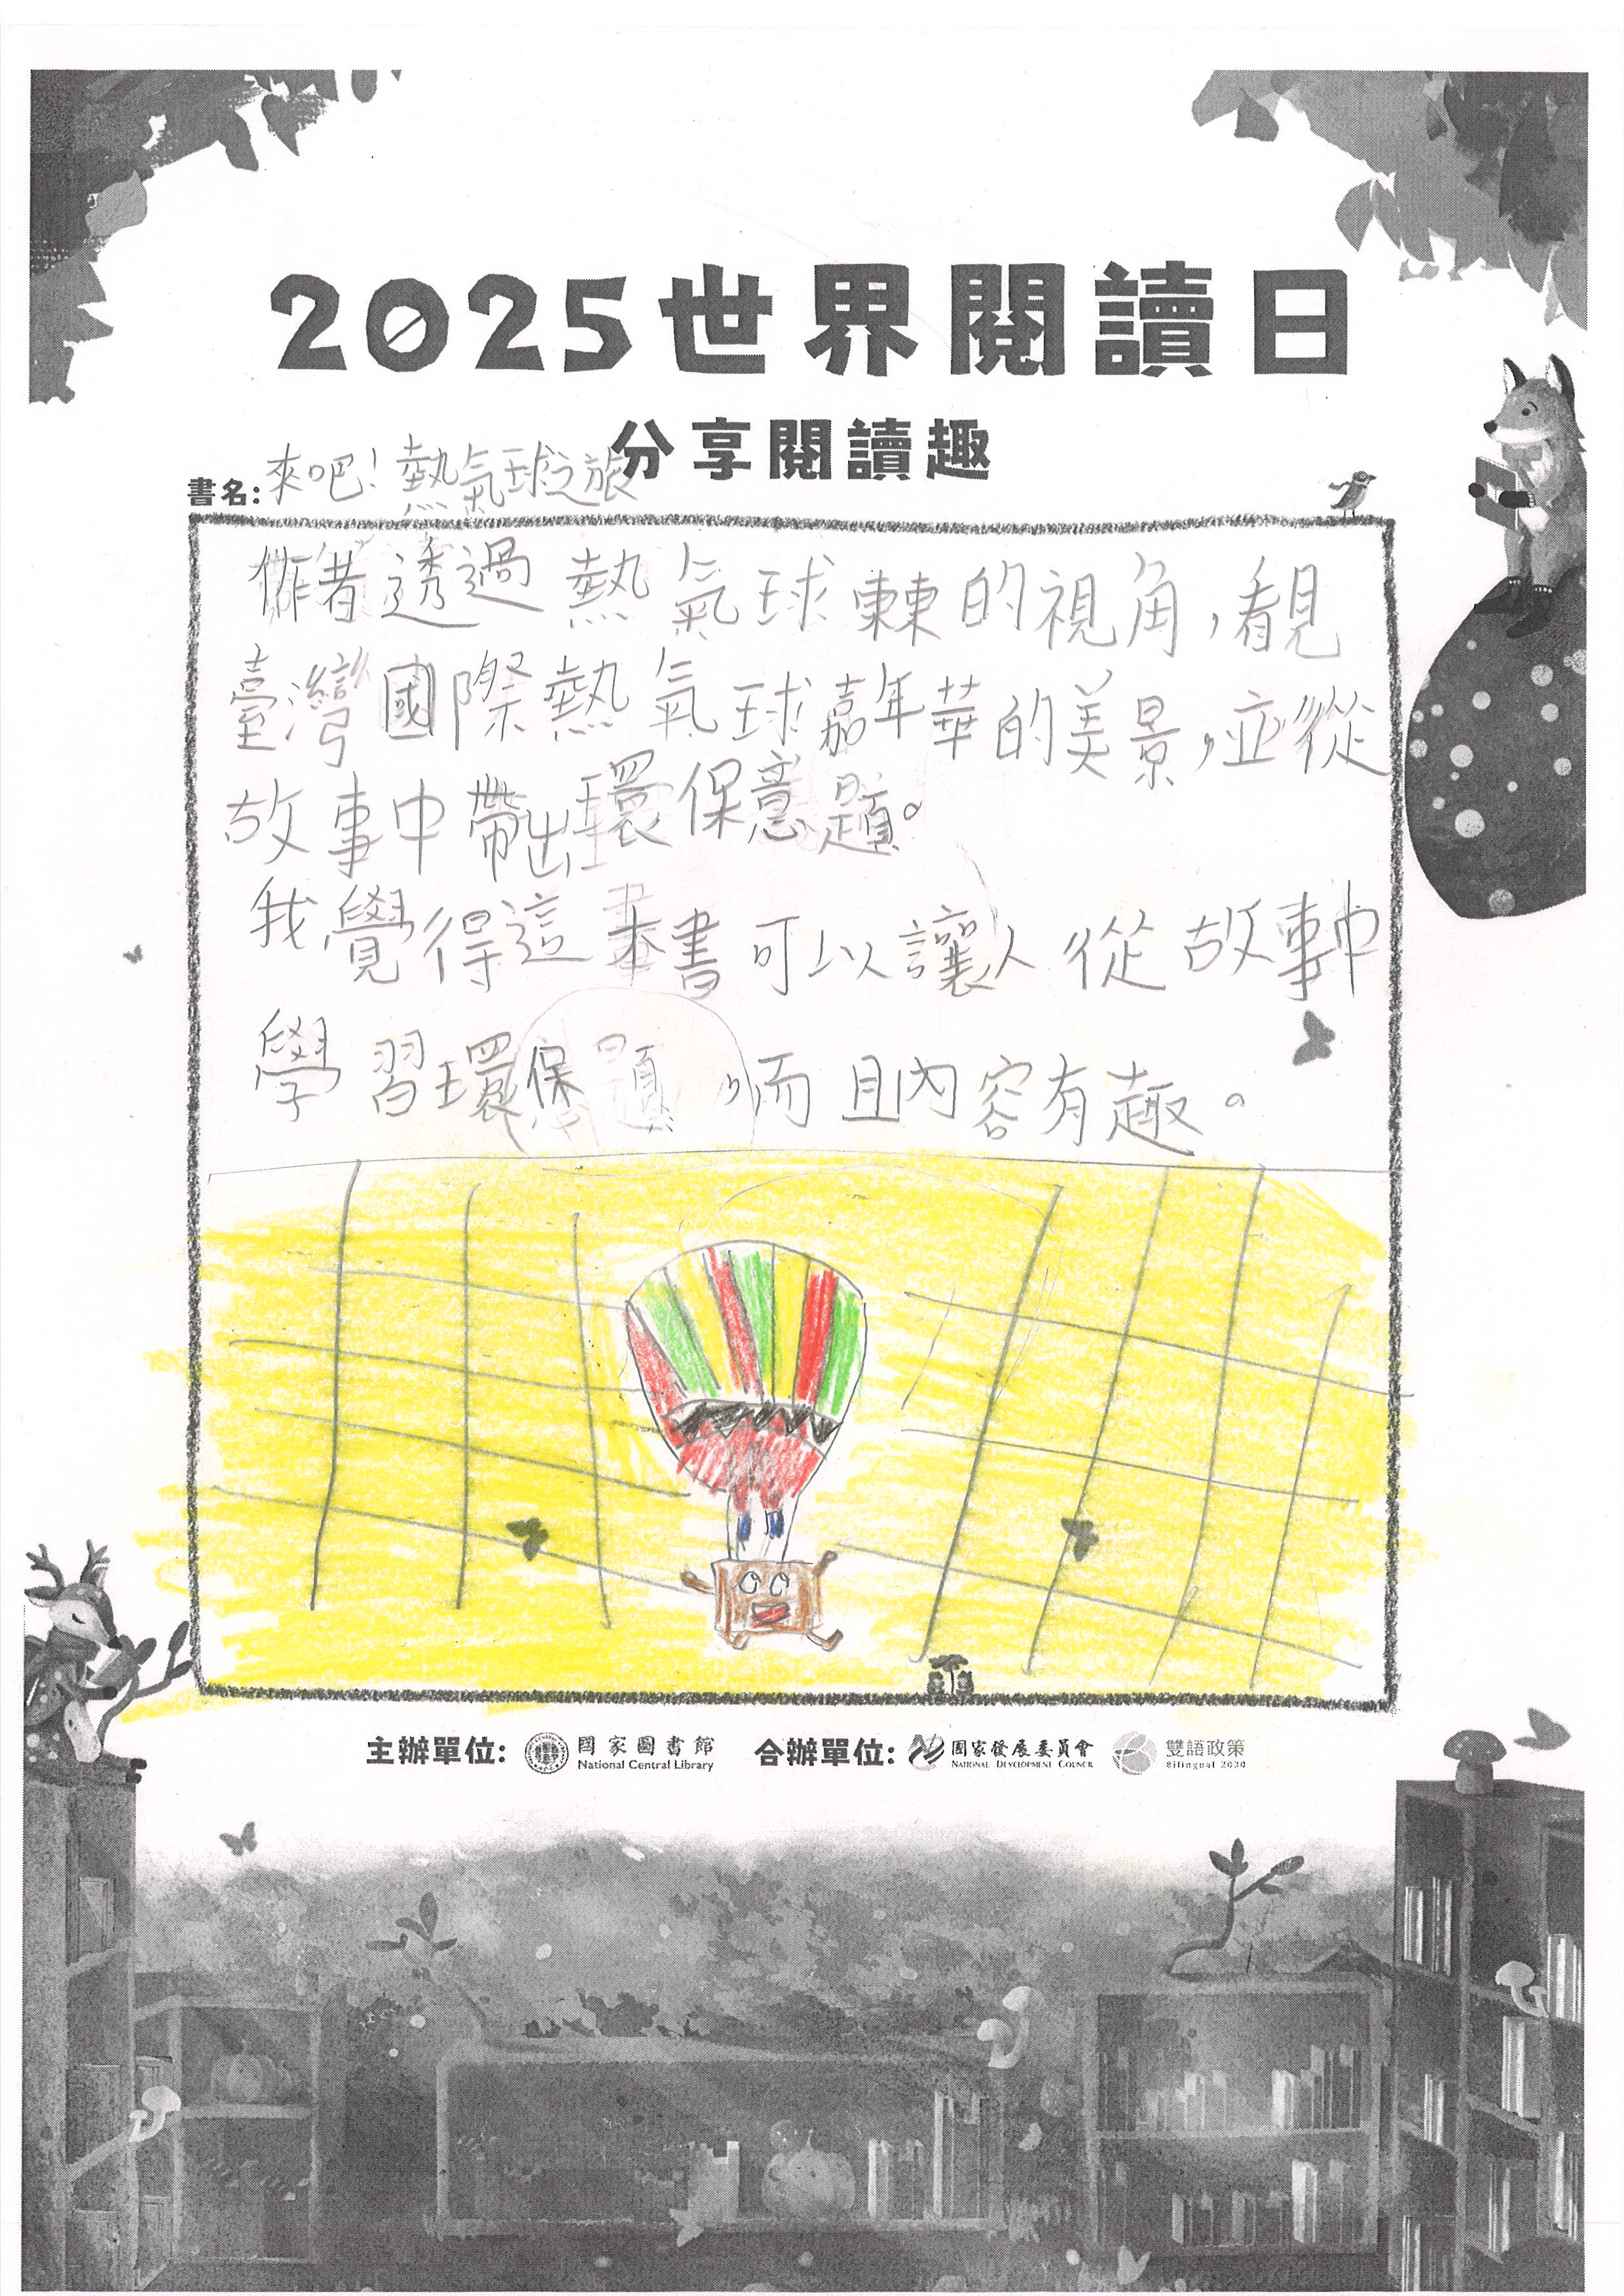 2025世界閱讀日
分享閱讀趣
書名:來吧!熱氣球之旅
作者透過熱氣球棘的視角,看見
臺灣國際熱氣球嘉年華的美景,並從
故事中帶出環保意題。
我覺得這本書可以讓人從故事中
學習環保題,而且內容有趣。
主辦單位: 國家圖書館 合辦單位: 國家發展委員會 雙語政策
National Central Library NATIONAL DEVELOPMENT COUNCIL Bilingual 2030